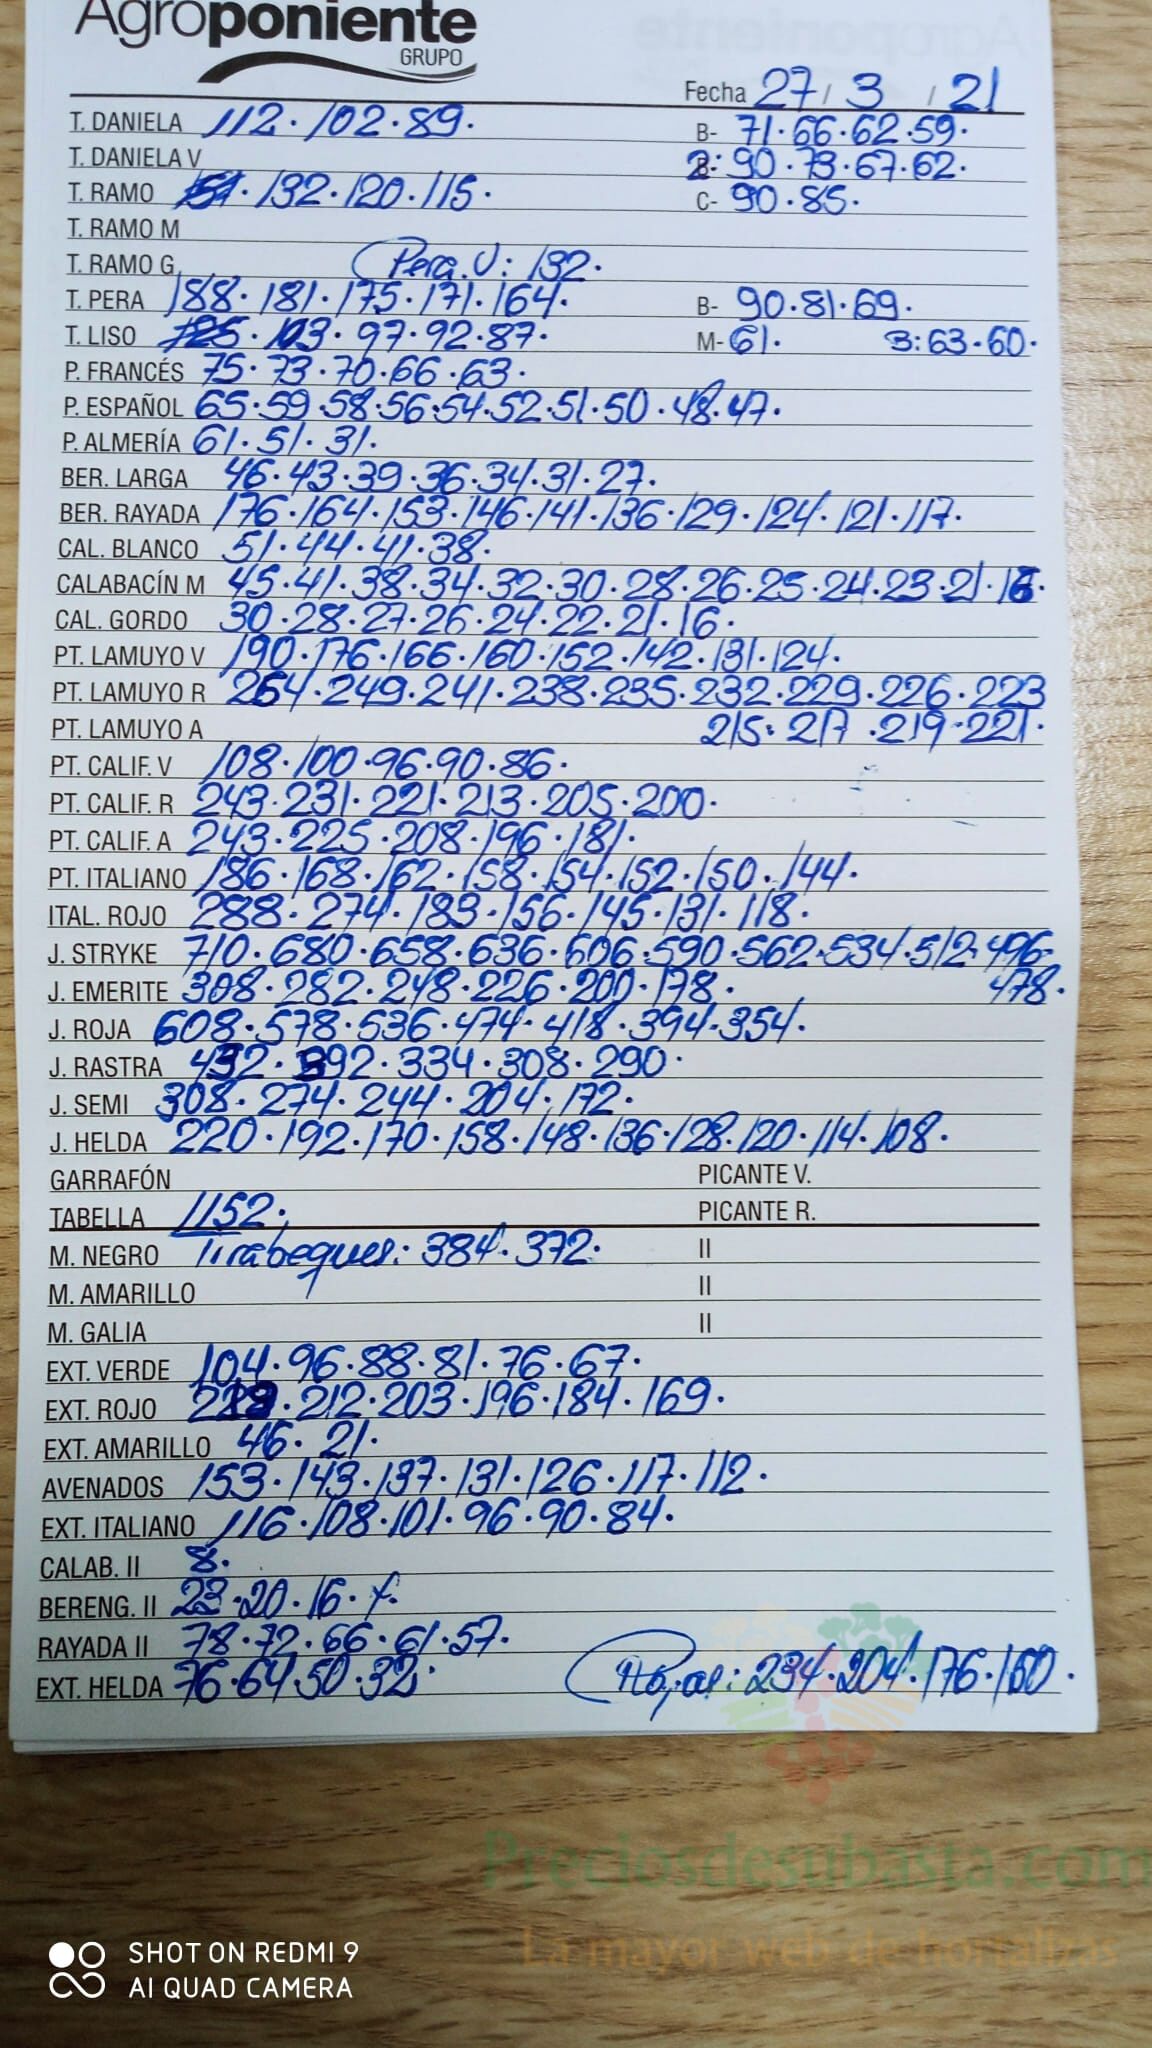 Agroponiente
GRUPO
Fecha 27 / 3 / 21
T. DANIELA 112. 102. 89. B- 71. 66. 62. 59.
T. DANIELA V 2: 90. 73. 67. 62.
T. RAMO 132. 120. 115. C- 90. 85.
T. RAMO M
T. RAMO G Pera. V: 132.
T. PERA 188. 181. 175. 171. 164. B- 90. 81. 69.
T. LISO 103. 97. 92. 87. M- 61. 3: 63. 60.
P. FRANCÉS 75. 73. 70. 66. 63.
P. ESPAÑOL 65. 59. 58. 56. 54. 52. 51. 50. 48. 47.
P. ALMERÍA 61. 51. 31.
BER. LARGA 46. 43. 39. 36. 34. 31. 27.
BER. RAYADA 176. 164. 153. 146. 141. 136. 129. 124. 121. 117.
CAL. BLANCO 51. 44. 41. 38.
CALABACÍN M 45. 41. 38. 34. 32. 30. 28. 26. 25. 24. 23. 21.
CAL. GORDO 30. 28. 27. 26. 24. 22. 21. 16.
PT. LAMUYO V 190. 176. 166. 160. 152. 142. 131. 124.
PT. LAMUYO R 264. 249. 241. 238. 235. 232. 229. 226. 223
PT. LAMUYO A 215. 217. 219. 221.
PT. CALIF. V 108. 100. 96. 90. 86.
PT. CALIF. R 243. 231. 221. 213. 205. 200.
PT. CALIF. A 243. 225. 208. 196. 181.
PT. ITALIANO 186. 168. 162. 158. 154. 152. 150. 144.
ITAL. ROJO 288. 274. 183. 156. 145. 131. 118.
J. STRYKE 710. 680. 658. 636. 606. 590. 562. 534. 512. 496.
J. EMERITE 308. 282. 248. 226. 200. 178. 478.
J. ROJA 608. 578. 536. 474. 418. 394. 354.
J. RASTRA 432. 392. 334. 308. 290.
J. SEMI 308. 274. 244. 204. 172.
J. HELDA 220. 192. 170. 158. 148. 136. 128. 120. 114. 108.
GARRAFÓN PICANTE V.
TABELLA 1152. PICANTE R.
M. NEGRO Tirabeques: 384. 372. II
M. AMARILLO II
M. GALIA II
EXT. VERDE 104. 96. 88. 81. 76. 67.
EXT. ROJO 212. 203. 196. 184. 169.
EXT. AMARILLO 46. 21.
AVENADOS 153. 143. 137. 131. 126. 117. 112.
EXT. ITALIANO 116. 108. 101. 96. 90. 84.
CALAB. II 8.
BERENG. II 23. 20. 16.
RAYADA II 78. 72. 66. 61. 57.
EXT. HELDA 76. 64. 50. 32. Rojas: 234. 204. 176. 150.
Preciosdesubasta.com
La mayor web de hortalizas
SHOT ON REDMI 9
AI QUAD CAMERA